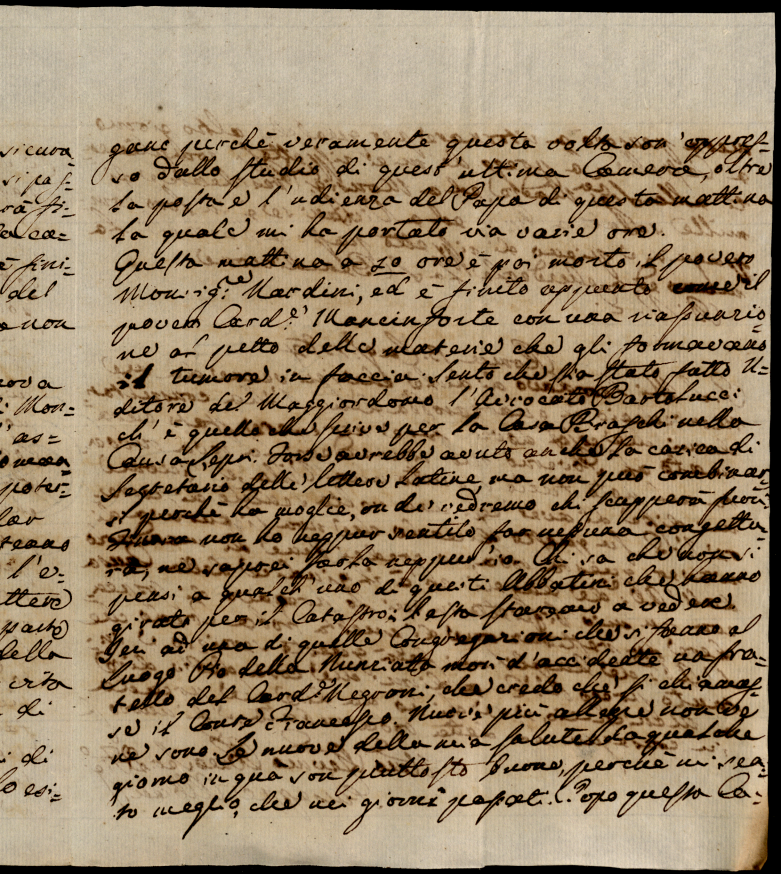 sicura
si pas-
rà fi-
la ca=
è fini-
del
e non
nova
di Mon-
l'as=
poter=
lar
l'e-
ettere
parte
della
vita
di
i di
lo esi=
gane perchè veramente questa volta son'oppres-
so dallo studio di quest'ultima Camera, oltre
la posta e l'udienza del Papa di questa mattina
la quale mi ha portato via varie ore.
Questa mattina a 10 ore è poi morto il povero
Monsig.re Nardini, ed è finito appunto come il
povero Card.e Mancinforte con una riassunzio-
ne al petto delle materie che gli formavano
il tumore in faccia. Sento che sia stato fatto U-
ditore del Maggiordomo l'Avvocato Bartolucci
ch'è quello che scrive per la Casa Braschi nella
Causa Lepri. Forse avrebbe avuto anche la carica di
Segretario delle lettere Latine ma non può combinar-
si perchè ha moglie, onde vedremo chi scapperà fuori
non ho neppur sentito far nessuna congettu-
ra, ne saprei farla neppur'io. Chi sa che non si
pensi a qualch'uno di questi Abbatini che hanno
girato per il Catastro; basta staremo a vedere.
Jeri ad una di quelle Congregazioni che si fanno al
luogo Pio della Nunziata morì d'accidente un fra=
tello del Card.e Negroni, che credo che si chiamas-
se il Conte Francesco. Nuove più allegre non ve
ne sono. Le nuove della mia salute da qualche
giorno in quà son piuttosto buone, perchè mi sen=
to meglio, che nei giorni passati. Dopo questa Ca-